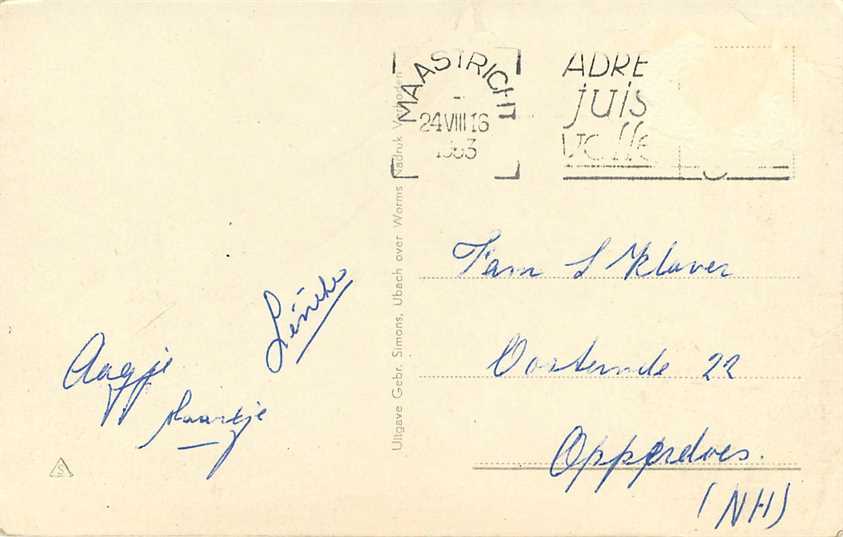 MAASTRICHT
24 VIII 16
ADRE
juis
volle
Uitgave Gebr. Simons, Ubach over Worms Nadruk Verboden
Fam S Klaver
22
Opperdoes.
(NH)
Aagje
Maartje
S